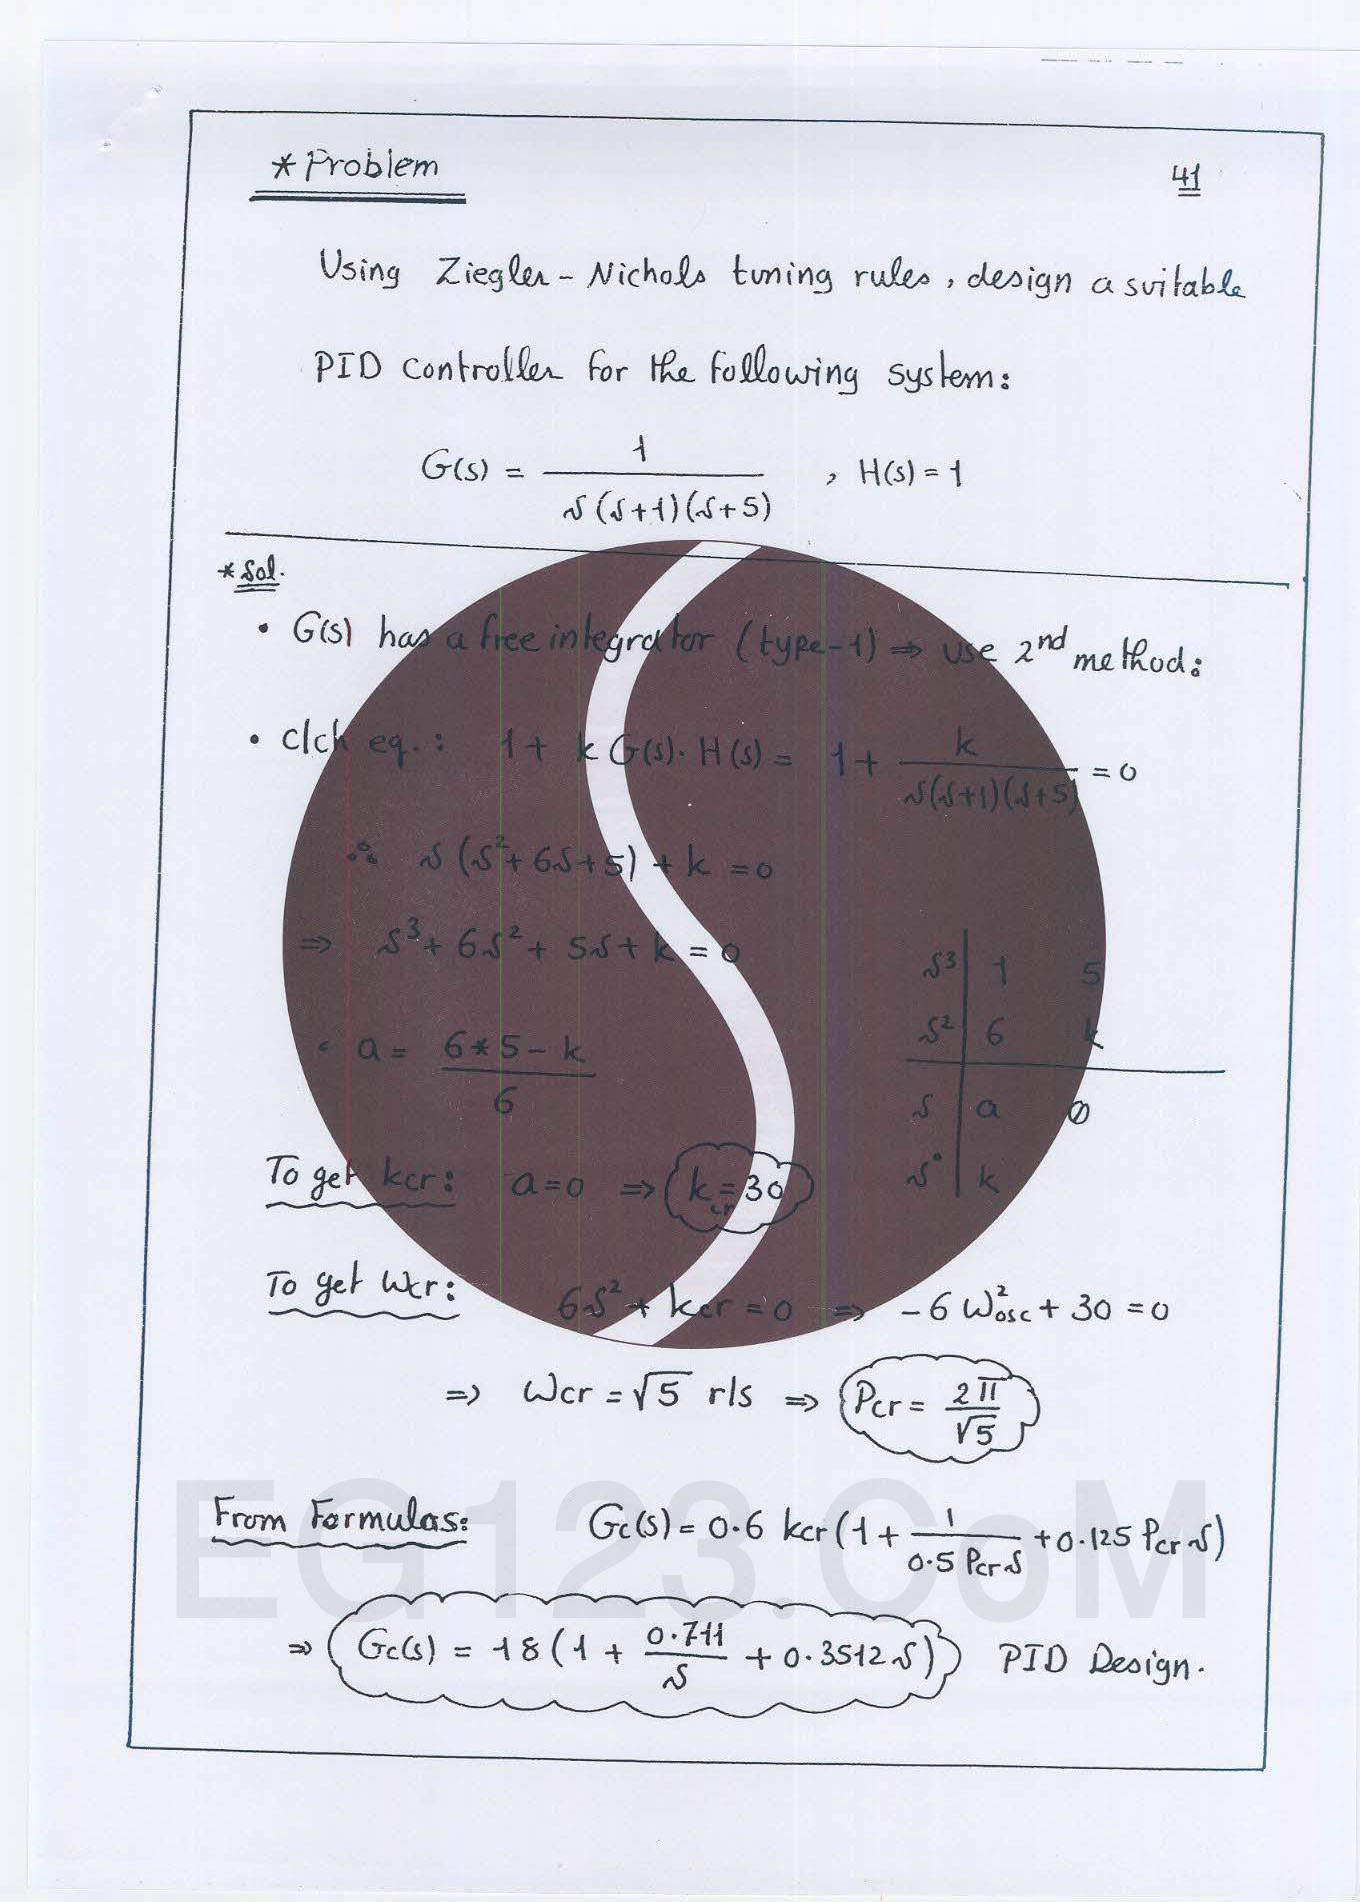 * Problem
41
Using Ziegler-Nichols tuning rules, design a suitable
PID controller for the following system:
G(s) = 1 / s(s+1)(s+5) , H(s) = 1
* Sol.
• G(s) has a free integrator (type-1) ⇒ use 2nd method:
• c/ch eq.: 1 + k G(s). H(s) = 1 + k / s(s+1)(s+5) = 0
∴ s(s²+6s+5) + k = 0
⇒ s³ + 6s² + 5s + k = 0
s³ | 1 5
s² | 6 k
s | a 0
s° | k
a = 6*5 - k / 6
To get kcr: a=0 ⇒ kcr = 30
To get Wcr: 6s² + kcr = 0 ⇒ -6 ω²osc + 30 = 0
⇒ Wcr = √5 r/s ⇒ Pcr = 2π / √5
From Formulas: Gc(s) = 0.6 kcr (1 + 1 / 0.5 Pcr s + 0.125 Pcr s)
⇒ Gc(s) = 18 (1 + 0.711 / s + 0.3512 s) PID Design.
EG123.CoM